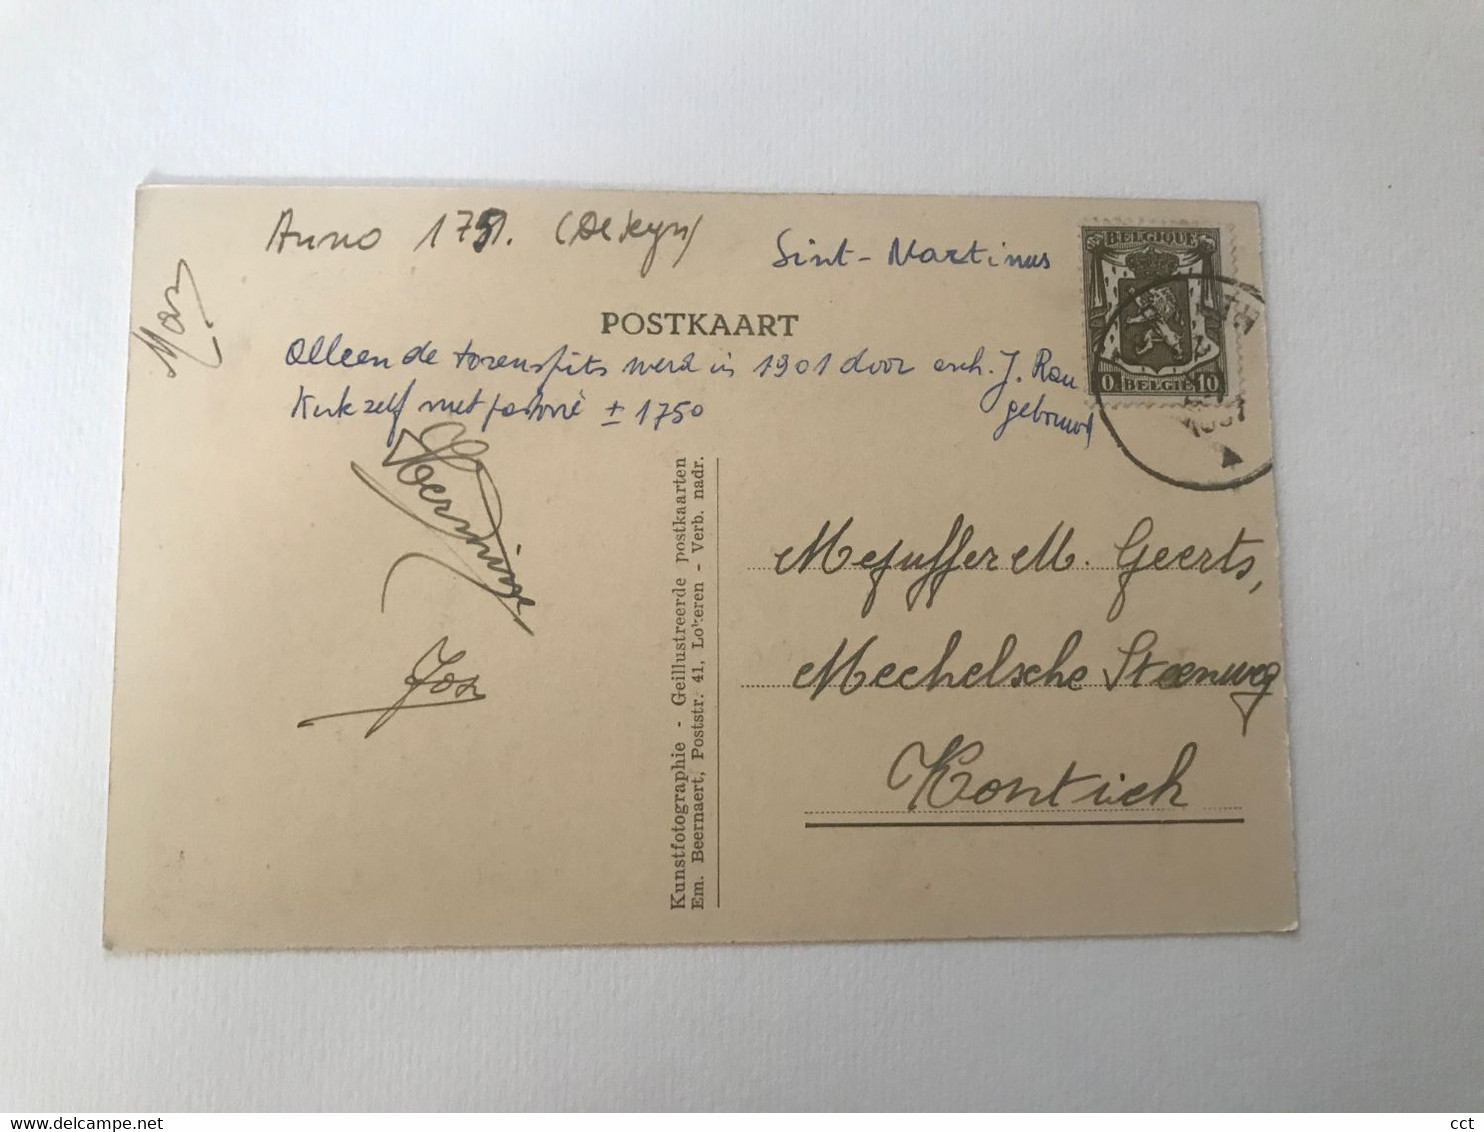 Anno 1751. (De Keyn)
Sint-Martinus
BELGIQUE
0 BELGIË 10
POSTKAART
Alleen de torenspits werd in 1901 door arch. J. Rau
gebouwd
Kerk zelf met pastorie ± 1750
Hermine
Jos
Kunstfotographie - Geillustreerde postkaarten
Em. Beernaert, Poststr. 41, Lokeren - Verb. nadr.
Mejuffer M. Geerts,
Mechelsche Steenweg
Kontich
cct